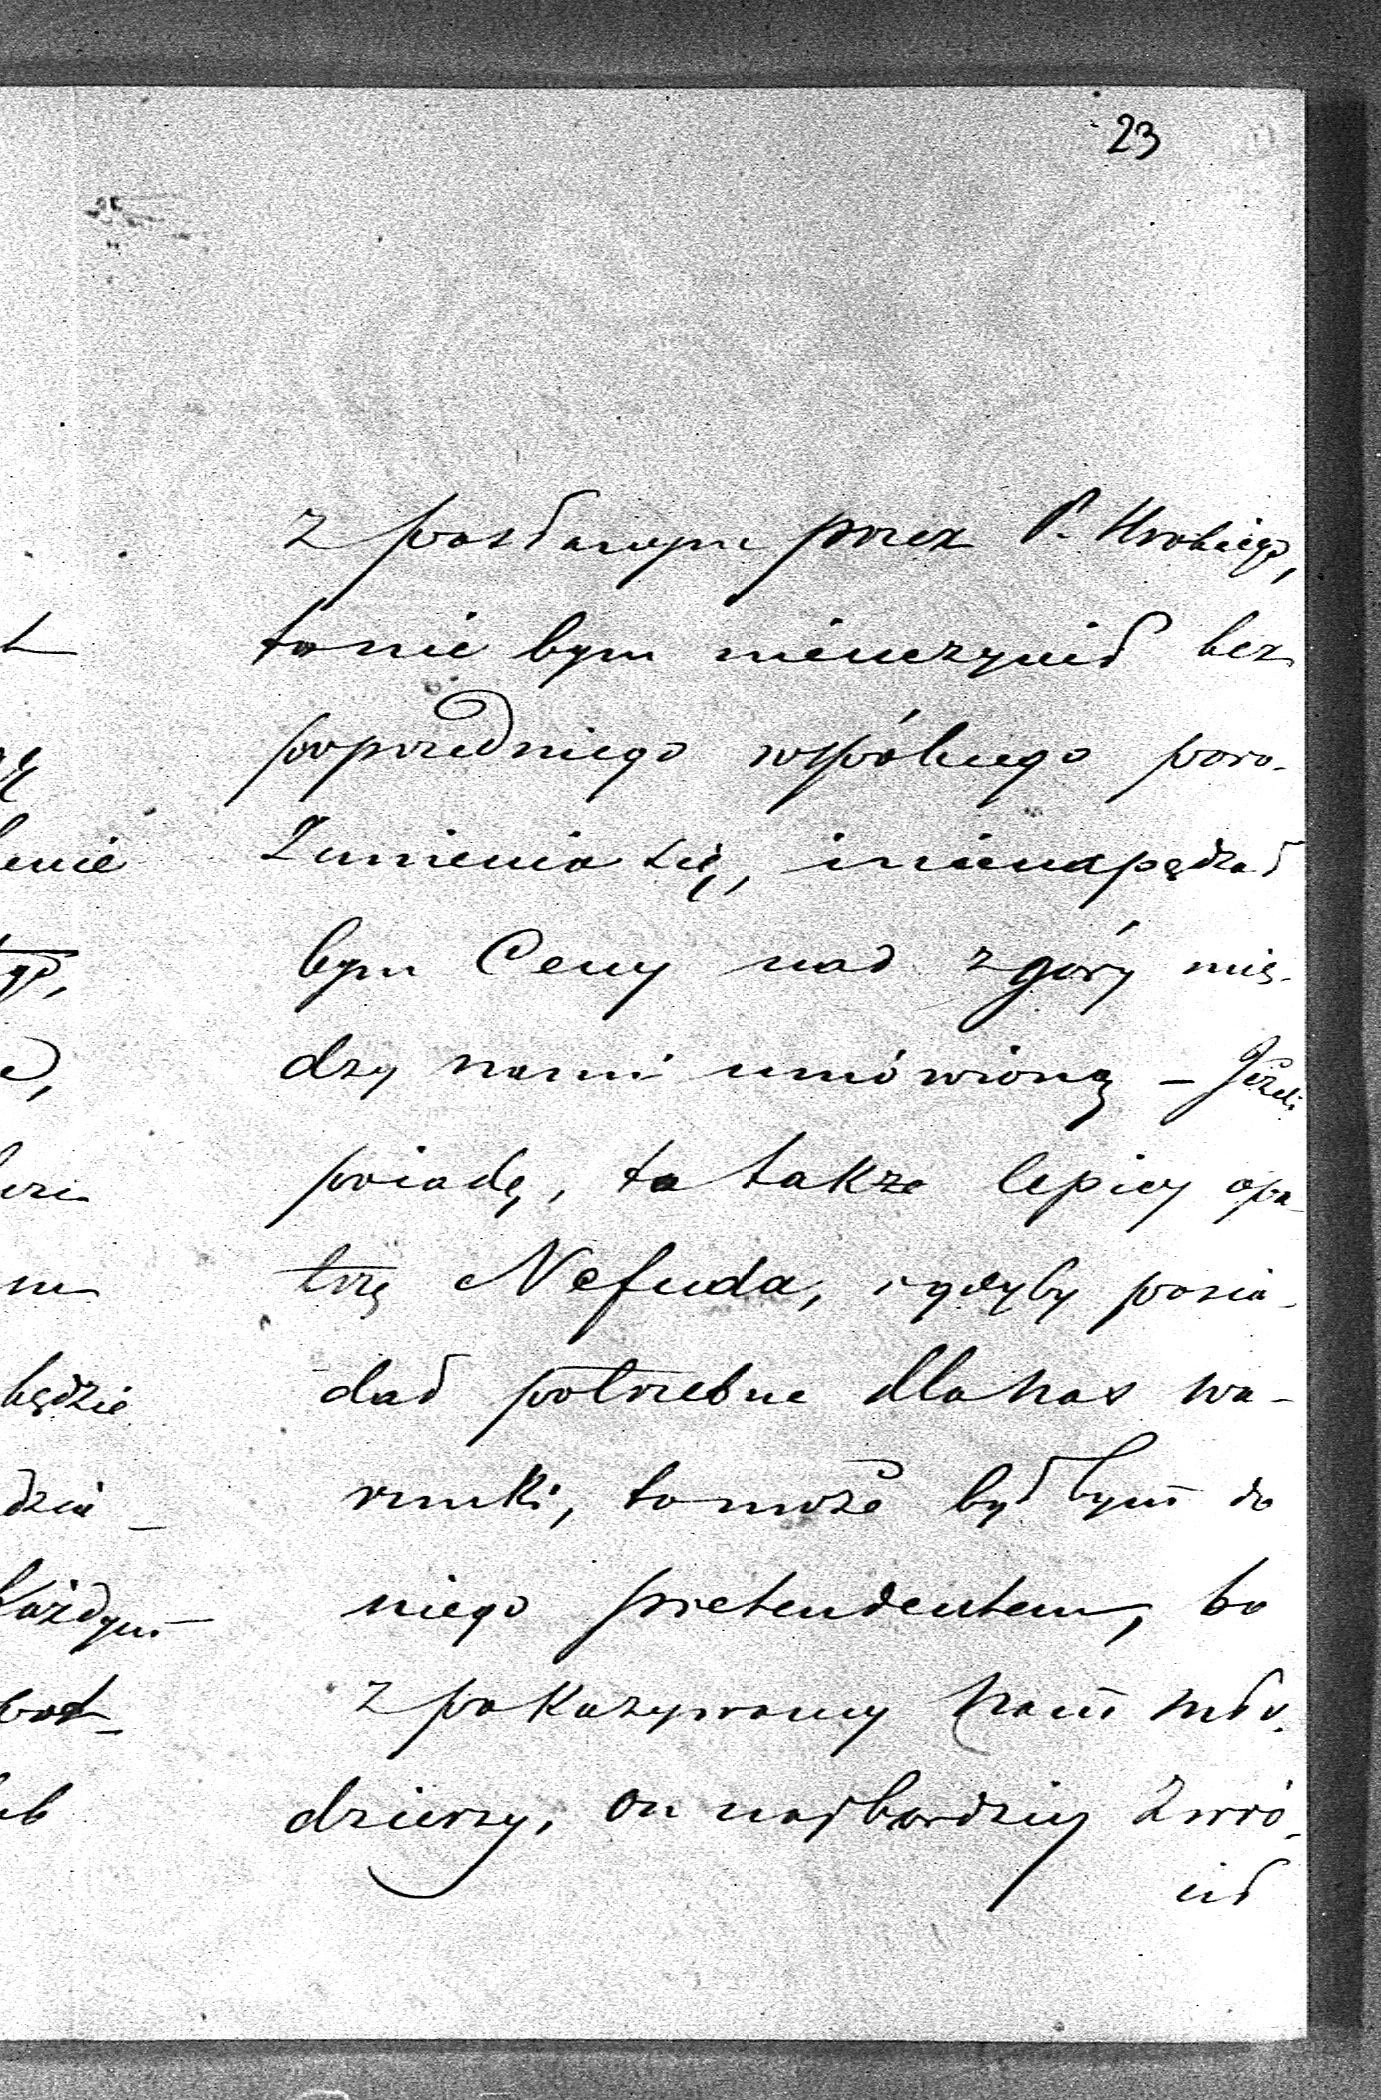 23
z posłanym przez P. Hrabiego,
to nie bym nieuczynił bez
poprzedniego wspólnego poro-
zumienia się, i nienapędzał
bym Ceny nad z góry mię-
dzy nami umówioną – Jeżeli
poiadę, to także lepiey opa-
trzę Nefuda, i gdyby posia-
dał potrzebne dla nas wa-
runki, to może był bym do
niego pretendentem, bo
z pokazywany nam mło-
dzierzy, on najbardziey zwró-
cił
enie
będzie
dzia-
Każdym